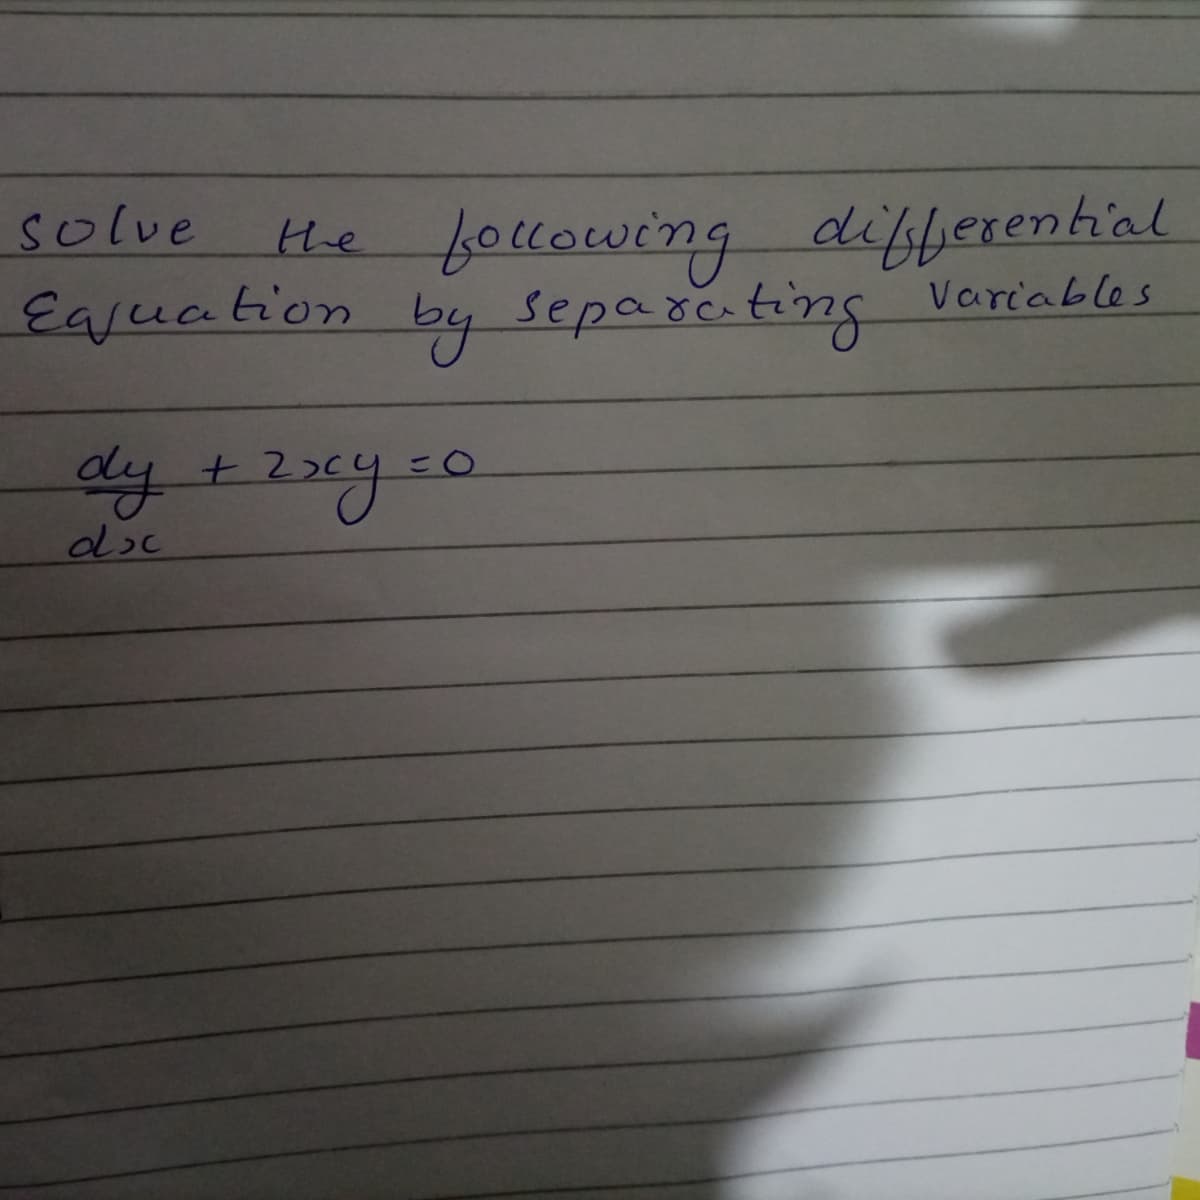 solve the following differential
Equation by separating Variables
dy + 2xy = 0
dx